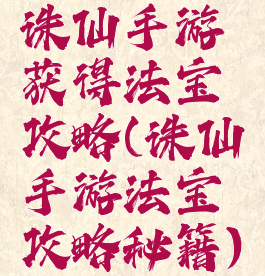 诛仙手游
获得法宝
攻略(诛仙
手游法宝
攻略秘籍)